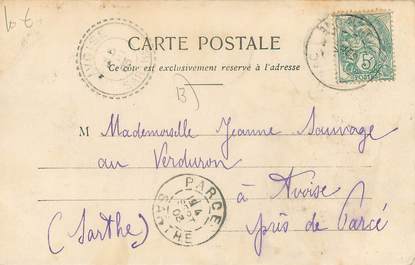 10€
CARTE POSTALE
Ce côté est exclusivement réservé à l'adresse
B)
M Mademoiselle Jeanne Sauvage
au Verduron
à Avoise
(Sarthe) près de Parcé
AVOISE
5
PARCÉ
14
SEPT
03
SARTHE